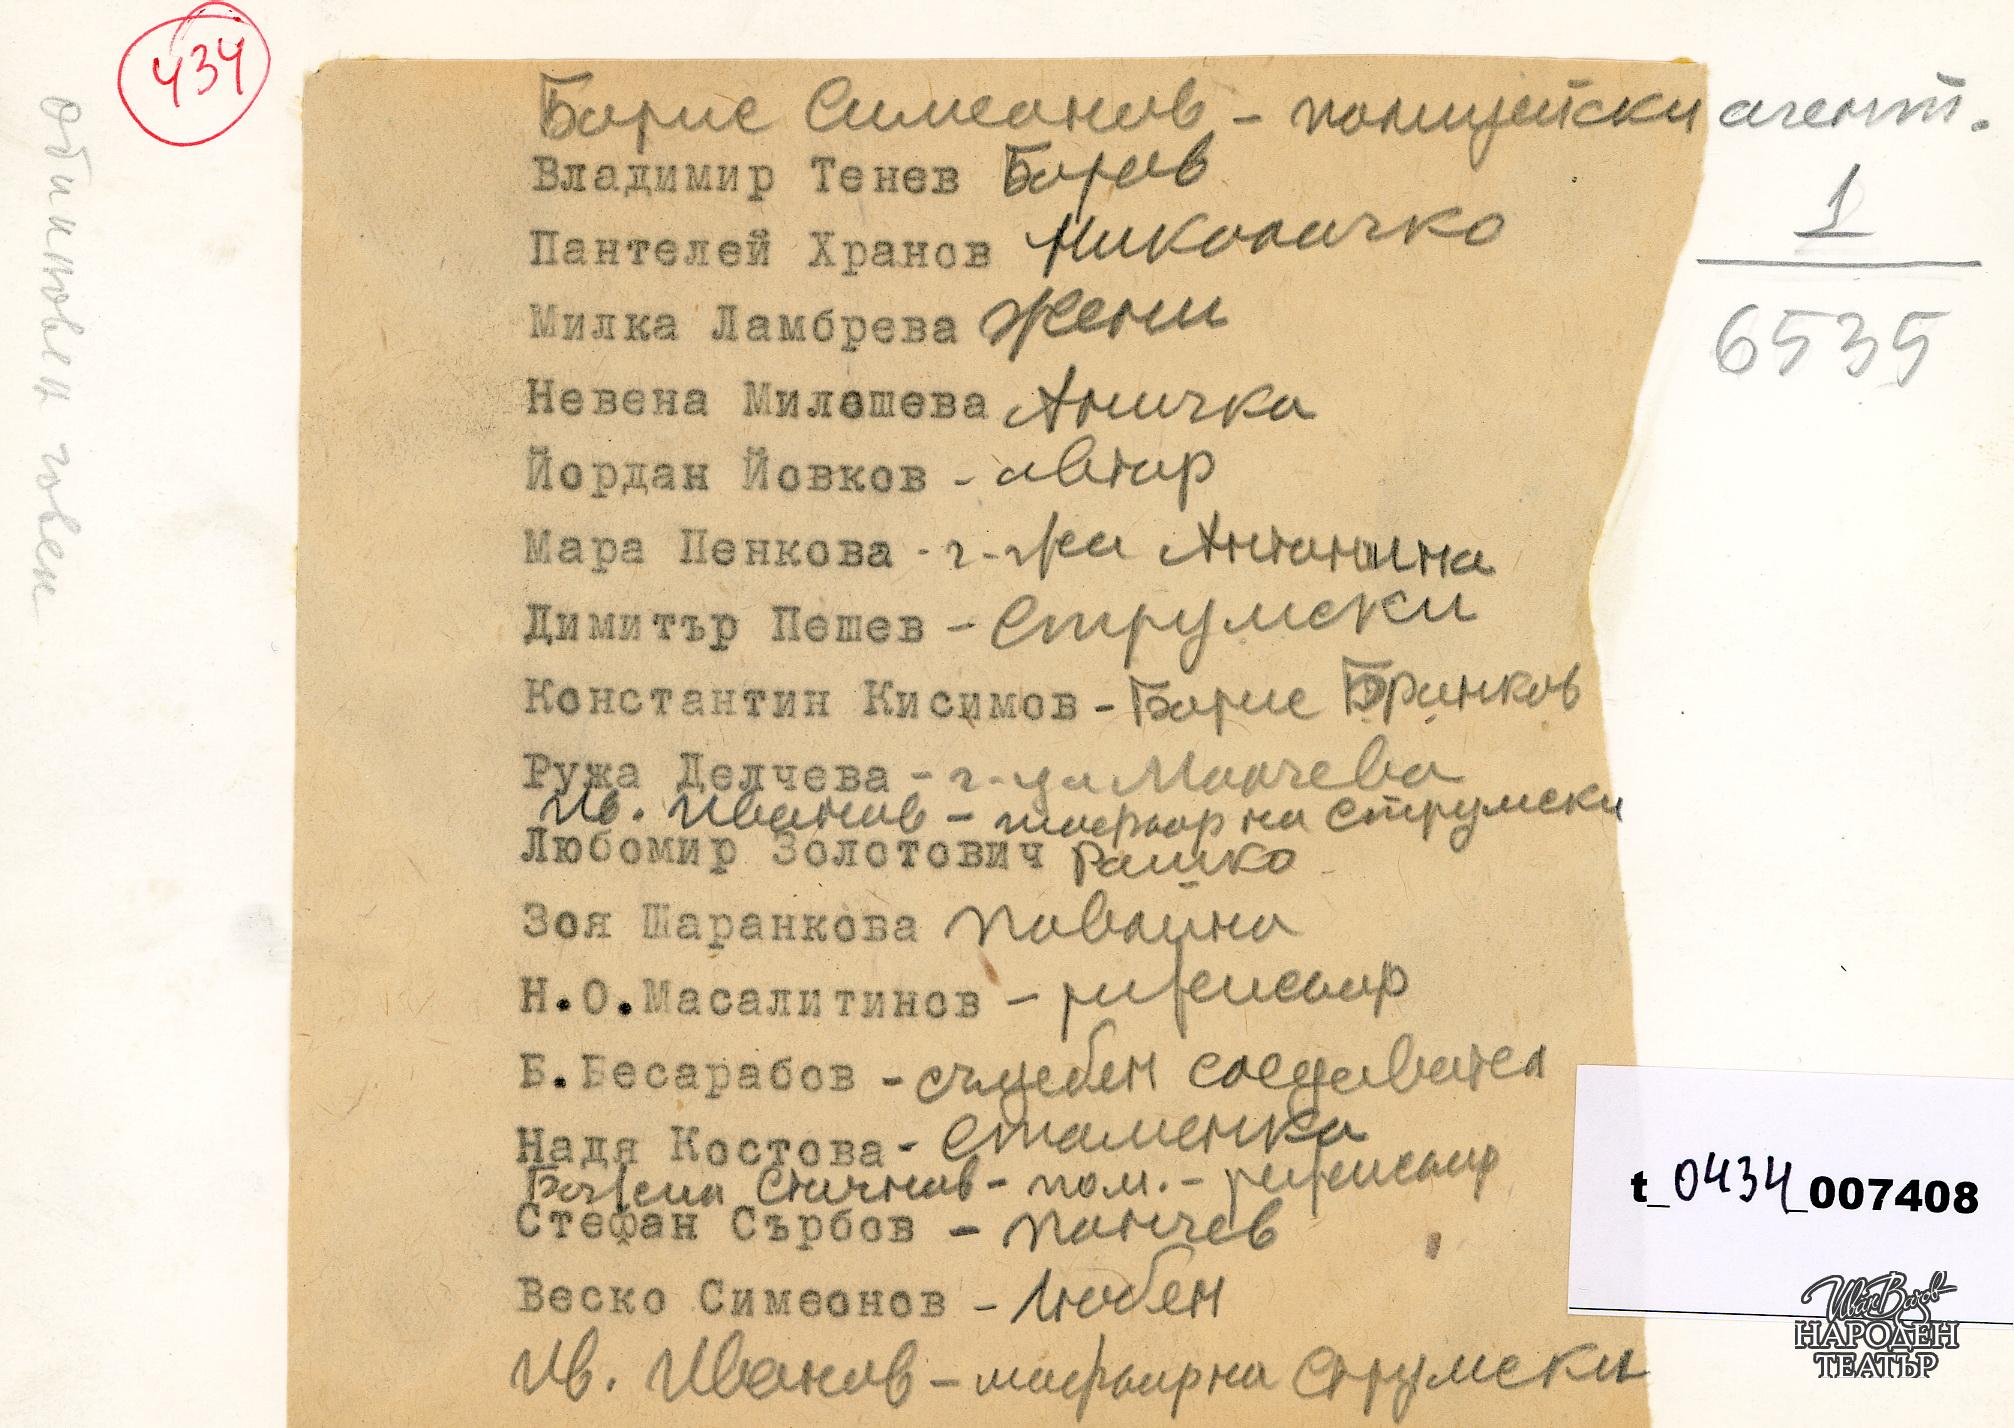 434
обикновен човек
Борис Симеонов - полицейски агент.
1
6535
Владимир Тенев Боров
Пантелей Хранов Николачко
Милка Ламбрева Жени
Невена Милошева Аничка
Йордан Йовков - автор
Мара Пенкова - г-жа Антонина
Димитър Пешев - Струмски
Константин Кисимов - Борис Бранков
Ружа Делчева - г-ца Манчева
Ив. Иванов - шофьор на Струмски
Любомир Золотович Рашко
Зоя Шаранкова
Н.О.Масалитинов - режисьор
Б.Бесарабов - съдебен следовател
Надя Костова - Стаменка
- пом. - режисьор
Стефан Сърбов - Панчев
Веско Симеонов - Любен
Ив. Иванов - шофьор на Струмски
t_0434_007408
Иван Вазов
НАРОДЕН
ТЕАТЪР